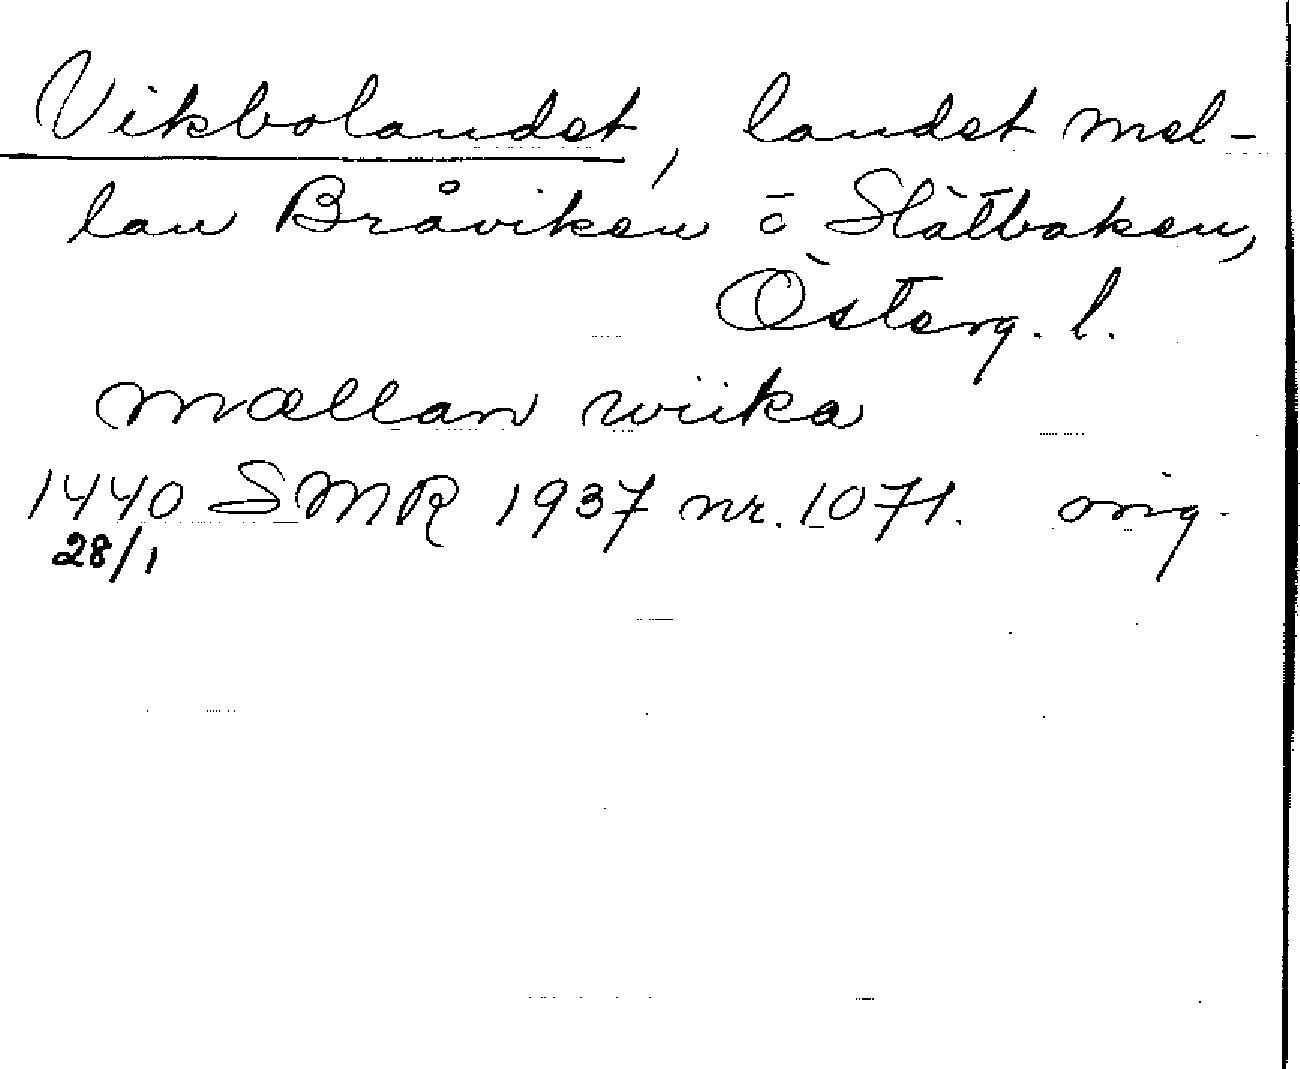 Vikbolandet, landet mel-
lan Bråviken o Slätbaken,
Österg. l.
mællan wiika
1440 SMR 1937 nr. 1071. orig.
28/1